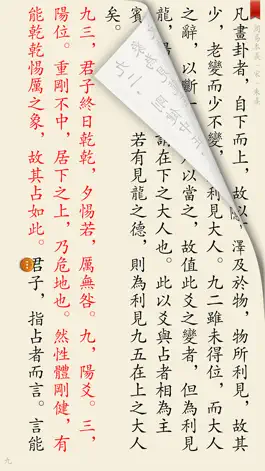 周易本義·宋·朱熹
凡畫卦者，自下而上，故以隱，澤及於物，物所利見，故其
少，老變而少不變，利見大人。九二雖未得位，而大人
之辭，以斷一以當之，故值此爻之變者，但為利見
龍，謂在下之大人也。此以爻與占者相為主
賓若有見龍之德，則為利見九五在上之大人
矣。
九三，君子終日乾乾，夕惕若，厲無咎。九，陽爻。三，
陽位。重剛不中，居下之上，乃危地也。然性體剛健，有
能乾乾惕厲之象，故其占如此。君子，指占者而言。言能
九